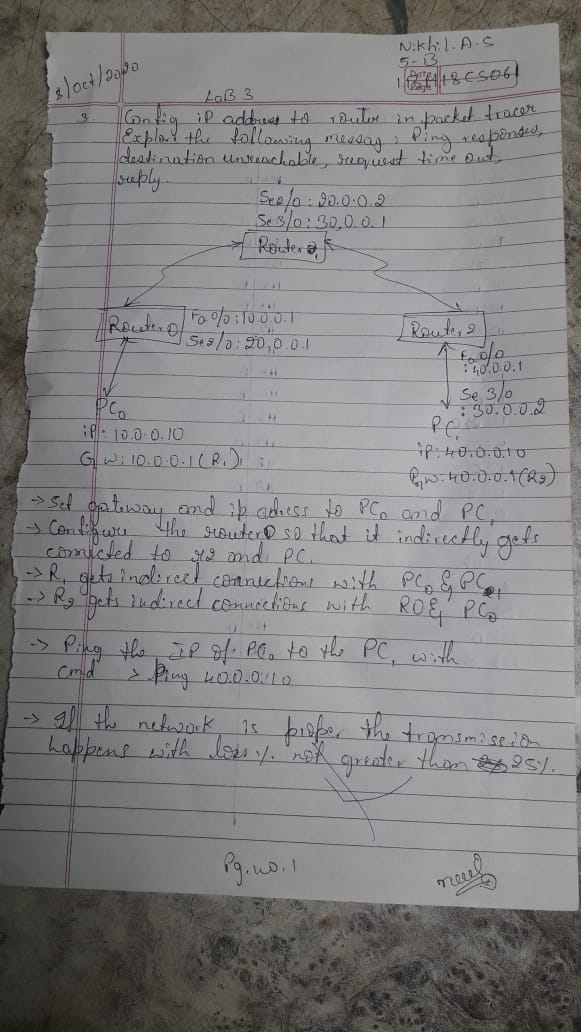 Nikhil.A.S
5-B
1BM18CS061
8/Oct/2020
LAB 3
3. Config iP address to router in packet tracer
Explore the following messag; Ping responses,
destination unreachable, request time out,
reply.
Se2/0 : 20.0.0.2
Se3/0 : 30,0.0.1
Router
Router 0
Fa0/0:10.0.0.1
Se2/0: 20,0.0.1
Router 2
Fa0/0
: 40.0.0.1
Se 3/0
: 30.0.0.2
PC0
iP: 10.0.0.10
G W: 10.0.0.1 (R1)
PC1
iP: 40.0.0.10
GW: 40.0.0.1 (R2)
-> Set gateway and ip adress to PC0 and PC1
-> Configure the router0 so that it indirectly gets
connected to r2 and PC.
-> R1 gets indirect connections with PC0 & PC1
-> R2 gets indirect connections with R0 & PC0
-> Ping the IP of PC0 to the PC1 with
cmd > Ping 40.0.0.10
-> If the network is proper the transmission
happens with loss % not greater than 25%.
Pg.no.1